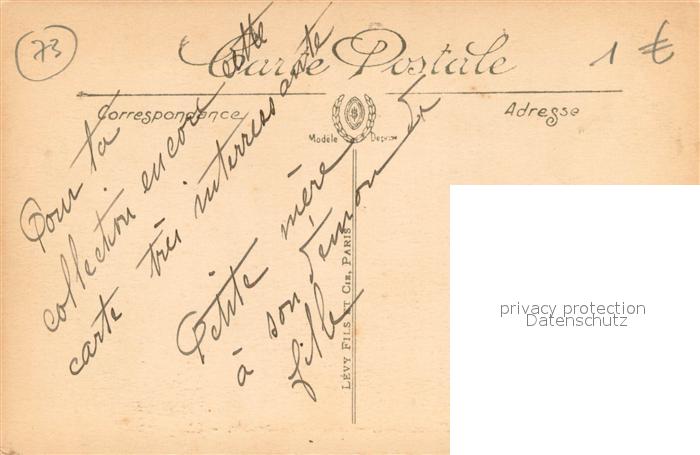 73
Carte Postale
1 €
Correspondance
Adresse
Modèle Déposé
Pour ta
collection encore cette
carte très interressante
Petite mère
à son démon de
fille
LÉVY FILS ET CIE, PARIS
privacy protection
Datenschutz